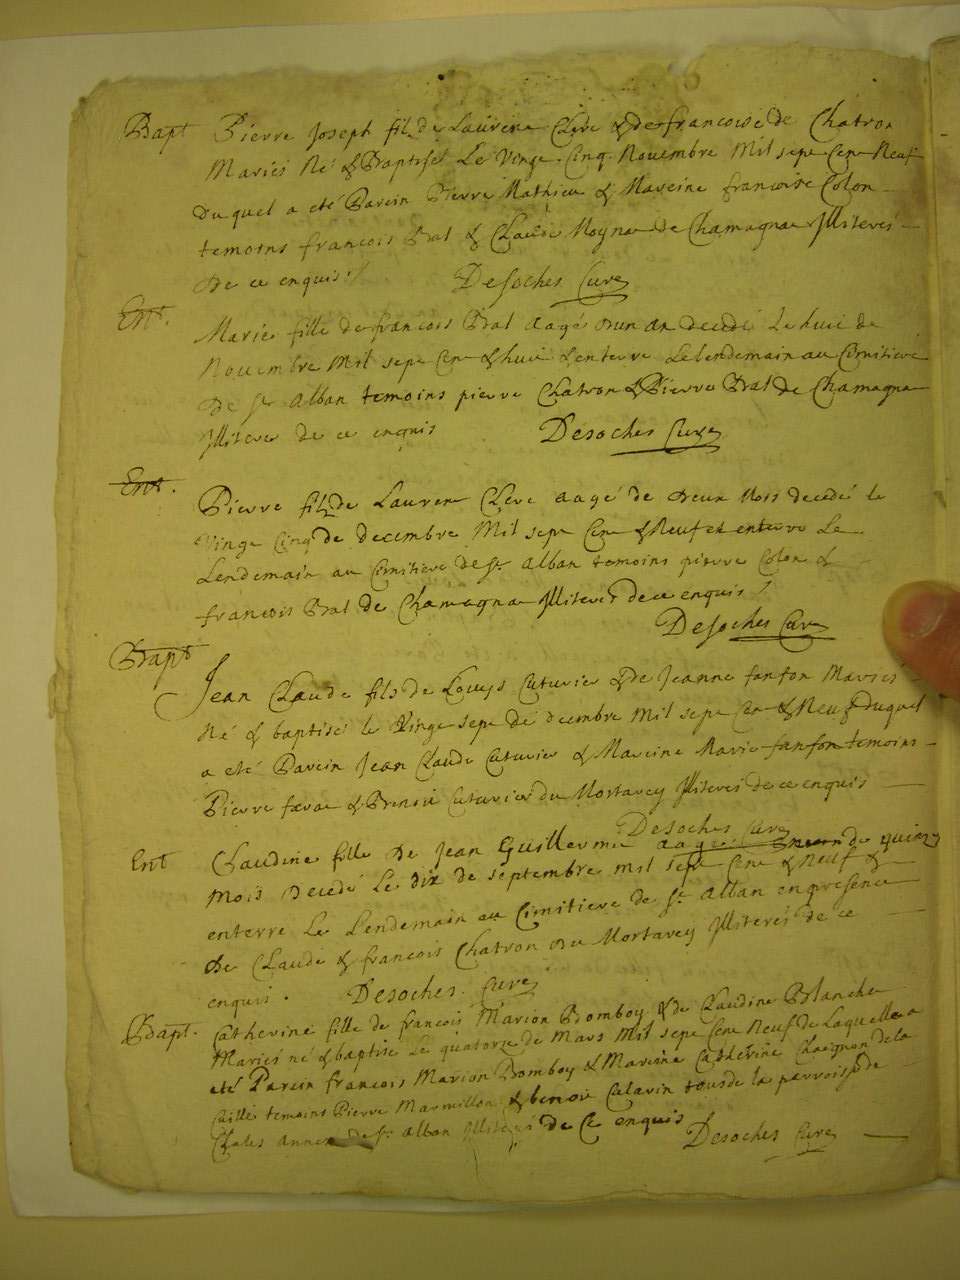 Bapt Pierre Joseph fils de Laurens Cleve & de francoise de Chatron
Maries Né & Baptisé Le Vingt Cinq Novembre Mil sept Cent Neuf
Duquel a eté Parein Pierre Mathieu & Mareine francoise Colon
temoins francois Bal & Claude Moyna de Chamagna Illiterés
De ce enquis Desoches Curé
Ent.
Marie fille de francois Bal aagé d'un an decedé Le huit de
Novembre Mil sept Cent & huit & enterré Le lendemain au Cimitiere
De st Alban temoins pierre Chatron & Pierre Bal de Chamagna
Illiteres de ce enquis Desoches Curé
Ent.
Pierre fils de Laurens Cleve aagé de deux Mois decedé le
Vingt Cinq de decembre Mil sept Cent & Neuf et enterré Le
Lendemain au Cimitiere de st Alban temoins pierre Colon &
francois Bal de Chamagna Illiteres de ce enquis
Desoches Curé
Bapt
Jean Claude fils de Louys Cuturier & de Jeanne fanfon Mariés
Né & baptisé le Vingt sept de decembre Mil sept Cent & Neuf Duquel
a eté Parein Jean Claude Cuturier & Mareine Marie fanfon temoins
Pierre & Benoit Cuturier du Mortarey Illiterés de ce enquis
Desoches Curé
Ent Claudine fille de Jean Guillermin aagé de quinze
Mois Decedé Le dix de septembre mil sept Cent & Neuf &
enterré Le Lendemain au Cimitiere de st Alban en presence
de Claude & francois Chatron du Mortarey Illiterés de ce
enquis. Desoches Curé
Bapt. Catherine fille de francois Marion Bomboy & de Claudine Blanche
Mariés né & baptisé Le quatorze de Mars Mil sept Cent Neuf de Laquelle a
eté Parein francois Marion Bomboy & Mareine Catherine de la
temoins Pierre Marmillon & benoit tous de la parroisse de
Chales Annex de st alban Illiterés de Ce enquis
Desoches Curé